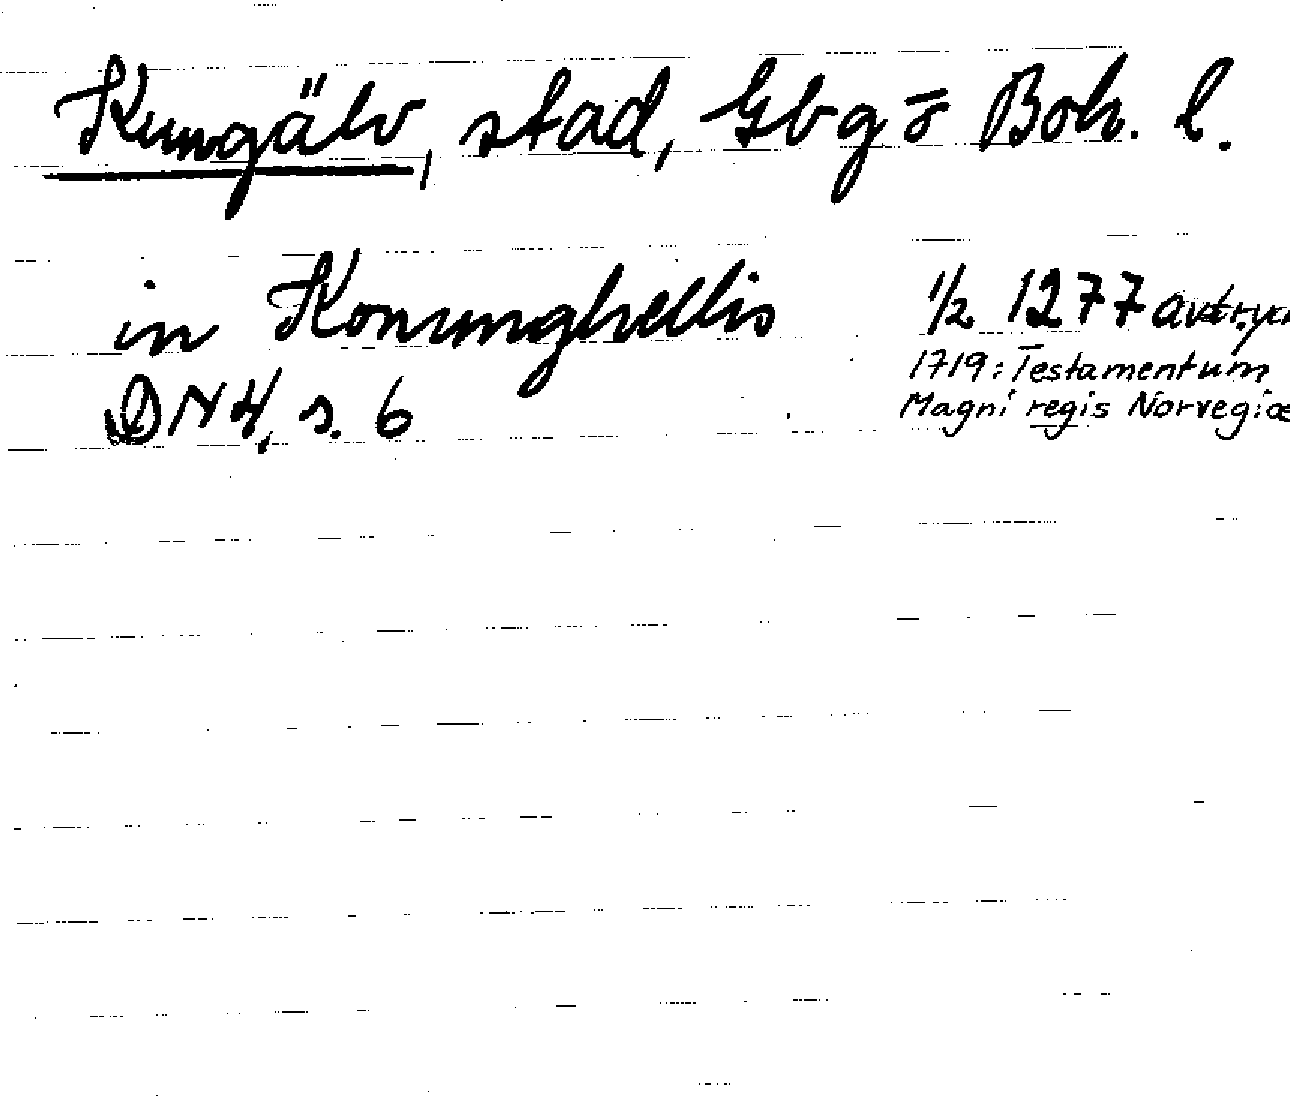 Kungälv, stad, Gbg o Boh. l.
in Konunghellis 1/2 1277 avtryck
DN 4, s. 6 1719: Testamentum
Magni regis Norvegiæ